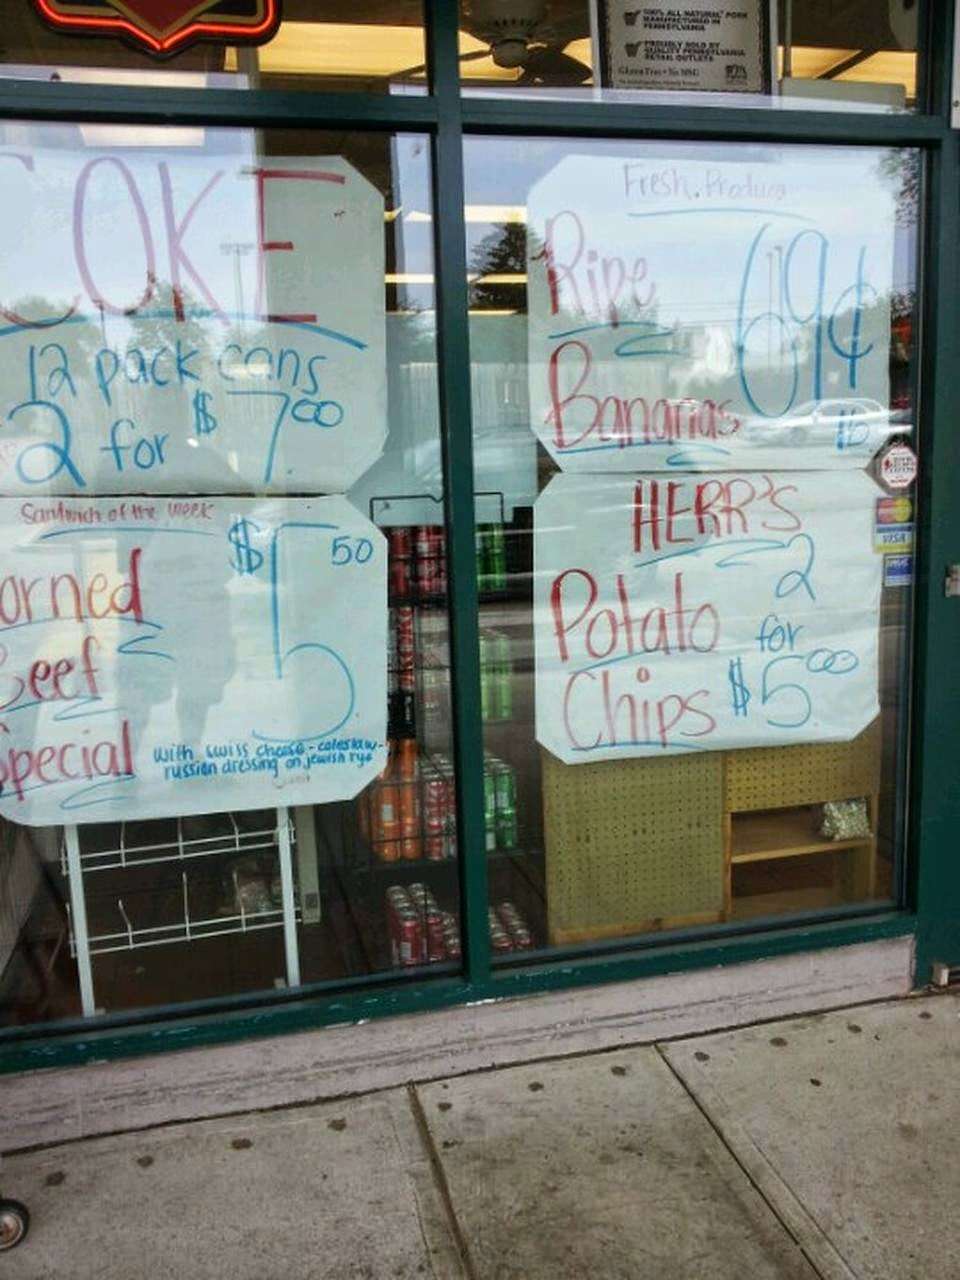 100% ALL NATURAL PORK
MANUFACTURED IN
PENNSYLVANIA
PROUDLY SOLD BY
QUALITY PENNSYLVANIA
RETAIL OUTLETS
Gluten Free • No MSG
COKE
12 pack cans
2 for $7.00
Sandwich of the week
orned
Beef
Special
$5 50
with swiss cheese-coleslaw-
russian dressing on jewish rye
Fresh Produce
Ripe
Bananas
69¢
lb
HERR'S
Potato
Chips
2
for
$5.00
VISA